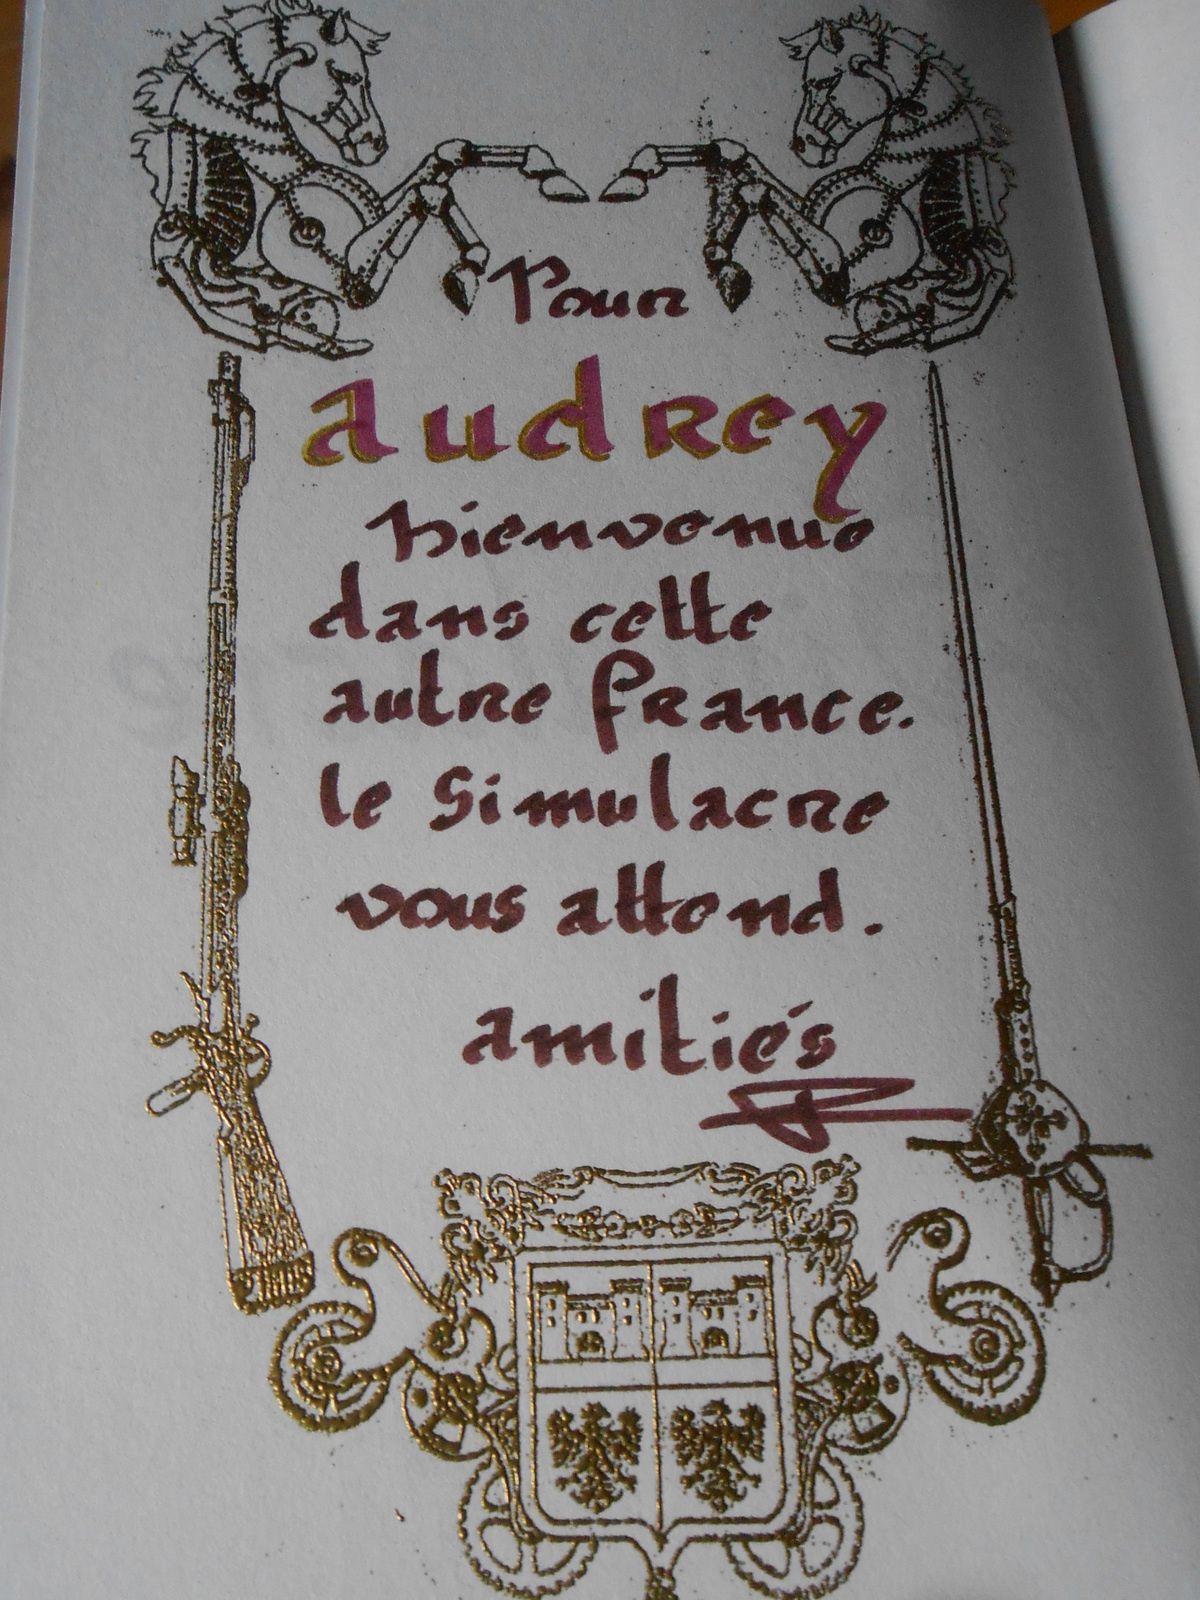 Pour
audrey
bienvenue
dans cette
autre france.
le Simulacre
vous attend.
amitiés